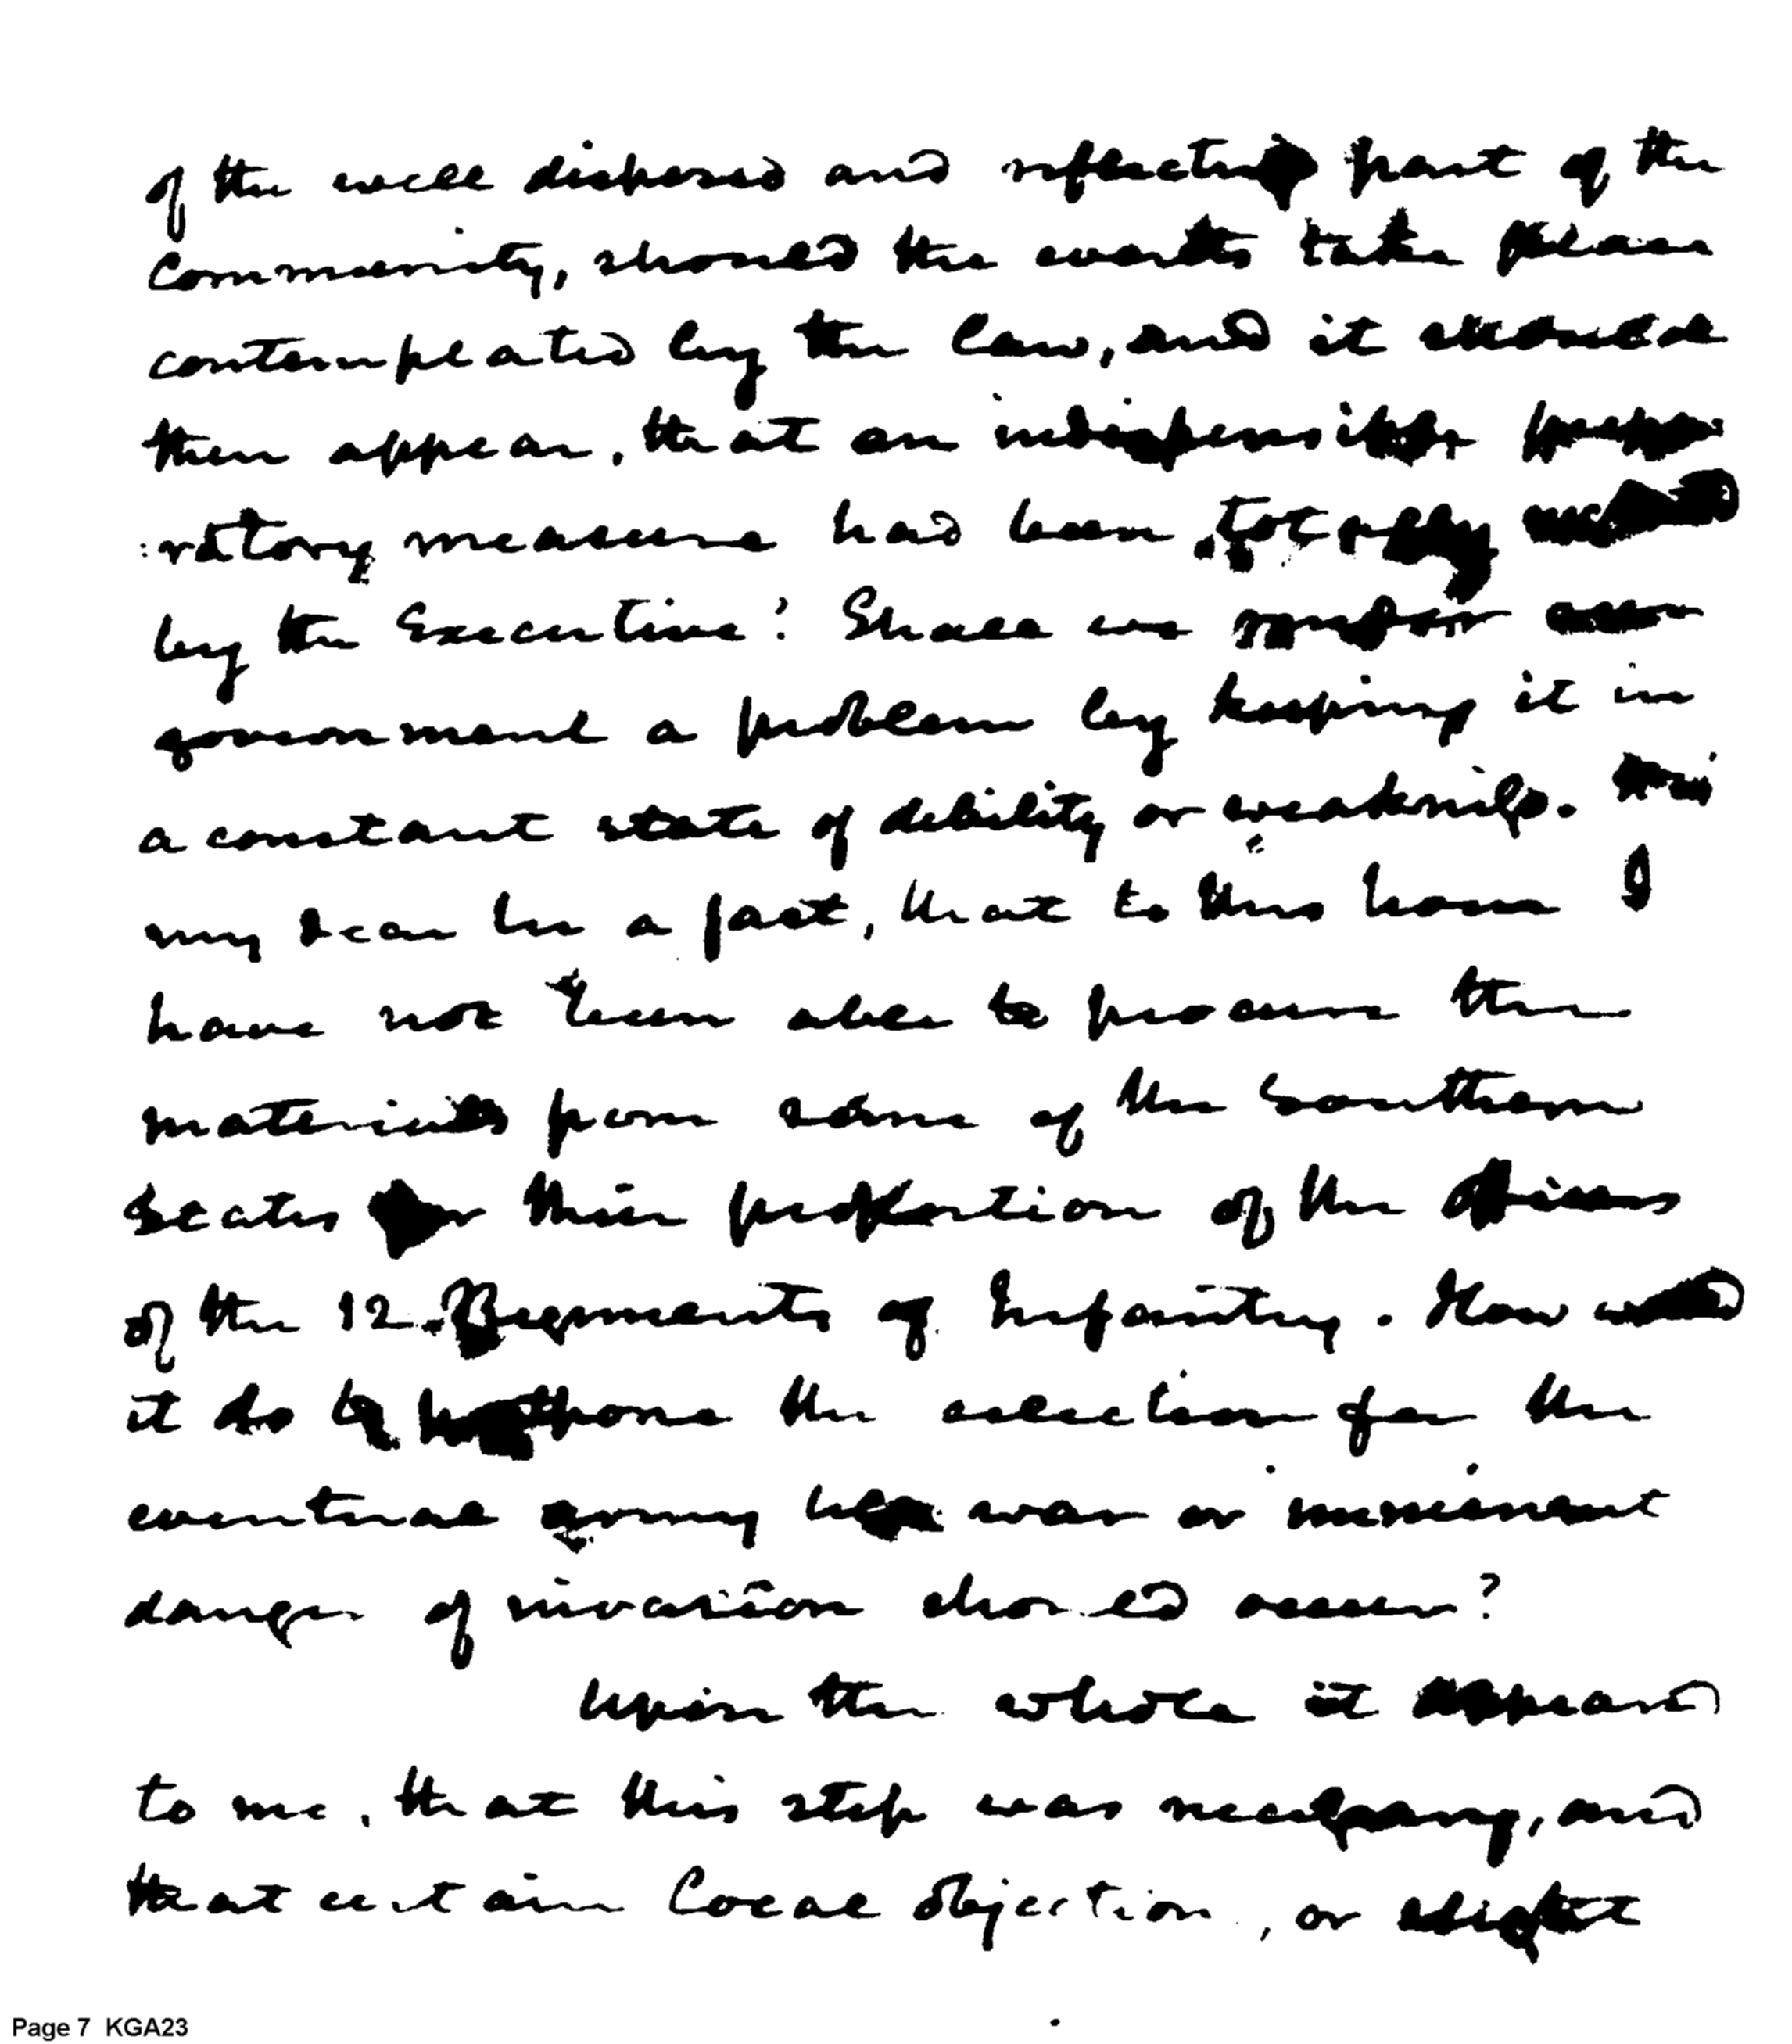 of the well disposed and reflecting part of the
community, should the events take place
contemplated by the law, and it should
then appear, that an indispensible prepa
:ratory measure had been totally
by the Executive? Shall we render our
government a problem by keeping it in
a constant state of debility or weakness.
my dear Sir a fact, that to this hour I
have not been able to procure the
materials from some of the Southern
States for their proportion of the officers
of the 12 Regiments of Infantry. How would
it do to postpone the selection for the
eventual army till war or imminent
danger of invasion should occur?
Upon the whole it appears
to me, that this step was necessary, and
that certain local objection, or slight
Page 7 KGA23